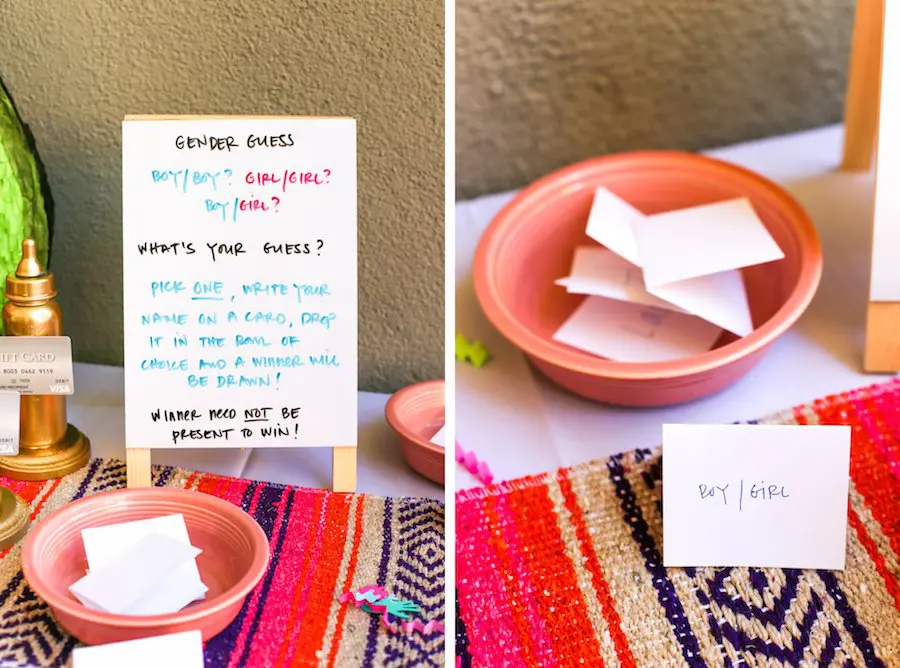 GENDER GUESS
BOY/BOY? GIRL/GIRL?
BOY/GIRL?
WHAT'S YOUR GUESS?
PICK ONE, WRITE YOUR
NAME ON A CARD, DROP
IT IN THE BOWL OF
CHOICE AND A WINNER WILL
BE DRAWN!
WINNER NEED NOT BE
PRESENT TO WIN!
IFT CARD
8003 0462 9199
DEBIT
VISA
BOY/GIRL